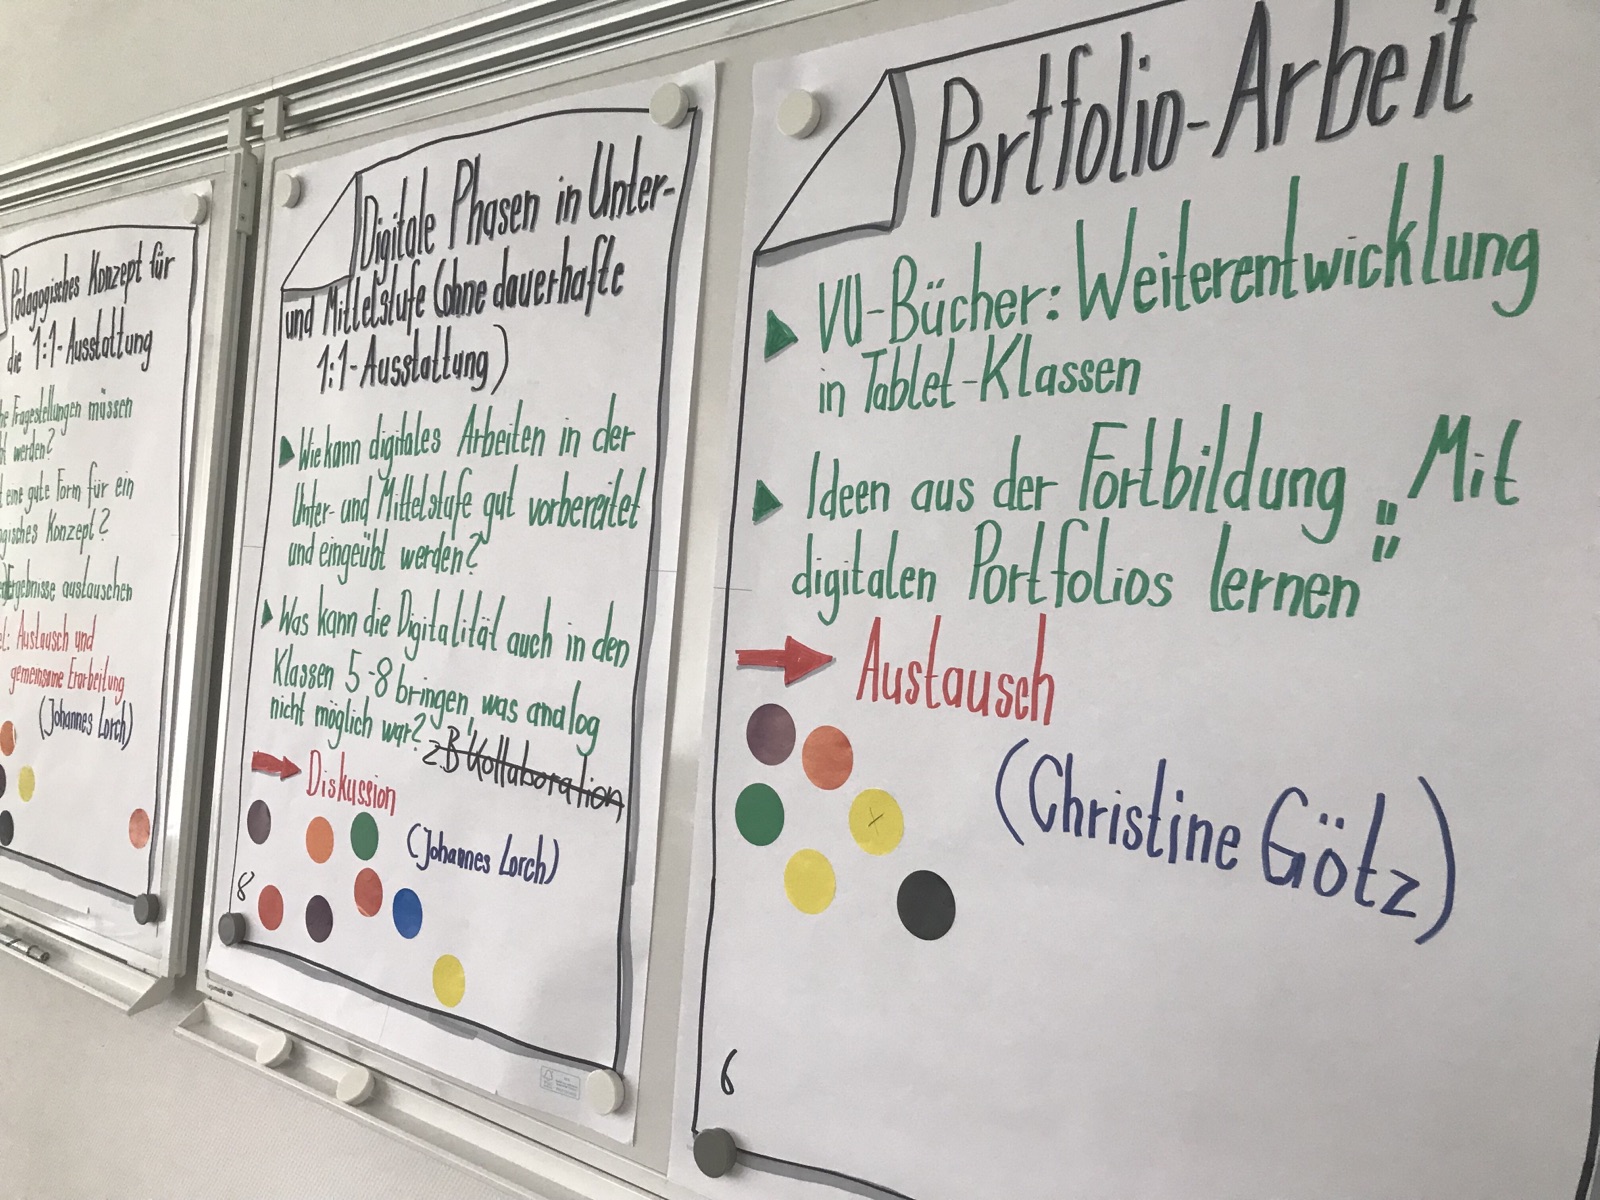 Pädagogisches Konzept für
die 1:1-Ausstattung
Fragestellungen müssen
werden?
eine gute Form für ein
Konzept?
Ergebnisse austauschen
Austausch und
gemeinsame Erarbeitung
(Johannes Lorch)
Digitale Phasen in Unter-
und Mittelstufe (ohne dauerhafte
1:1-Ausstattung)
Wie kann digitales Arbeiten in der
Unter- und Mittelstufe gut vorbereitet
und eingeübt werden?
Was kann die Digitalität auch in den
Klassen 5-8 bringen, was analog
nicht möglich war?
z.B Kollaboration
Diskussion
(Johannes Lorch)
8
Portfolio-Arbeit
VU-Bücher: Weiterentwicklung
in Tablet-Klassen
Ideen aus der Fortbildung „Mit
digitalen Portfolios lernen"
Austausch
(Christine Götz)
6